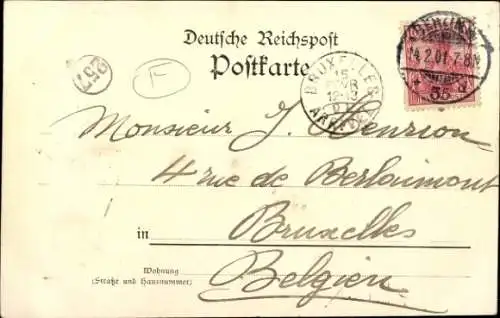 Deutsche Reichspost
Postkarte
257
F
BRUXELLES
15
12-
ARR
BERLIN
14.2.01.7-8N
35
Monsieur J. Henrion
4 rue de Berlaumont
in Bruxelles
Wohnung
(Straße und Hausnummer)
Belgien